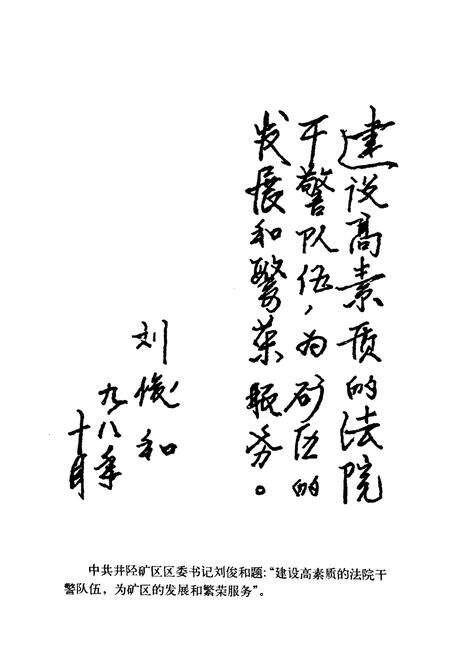 建设高素质的法院
干警队伍，为矿区的
发展和繁荣服务。
刘俊和
九八年
十月
中共井陉矿区区委书记刘俊和题：“建设高素质的法院干
警队伍，为矿区的发展和繁荣服务”。